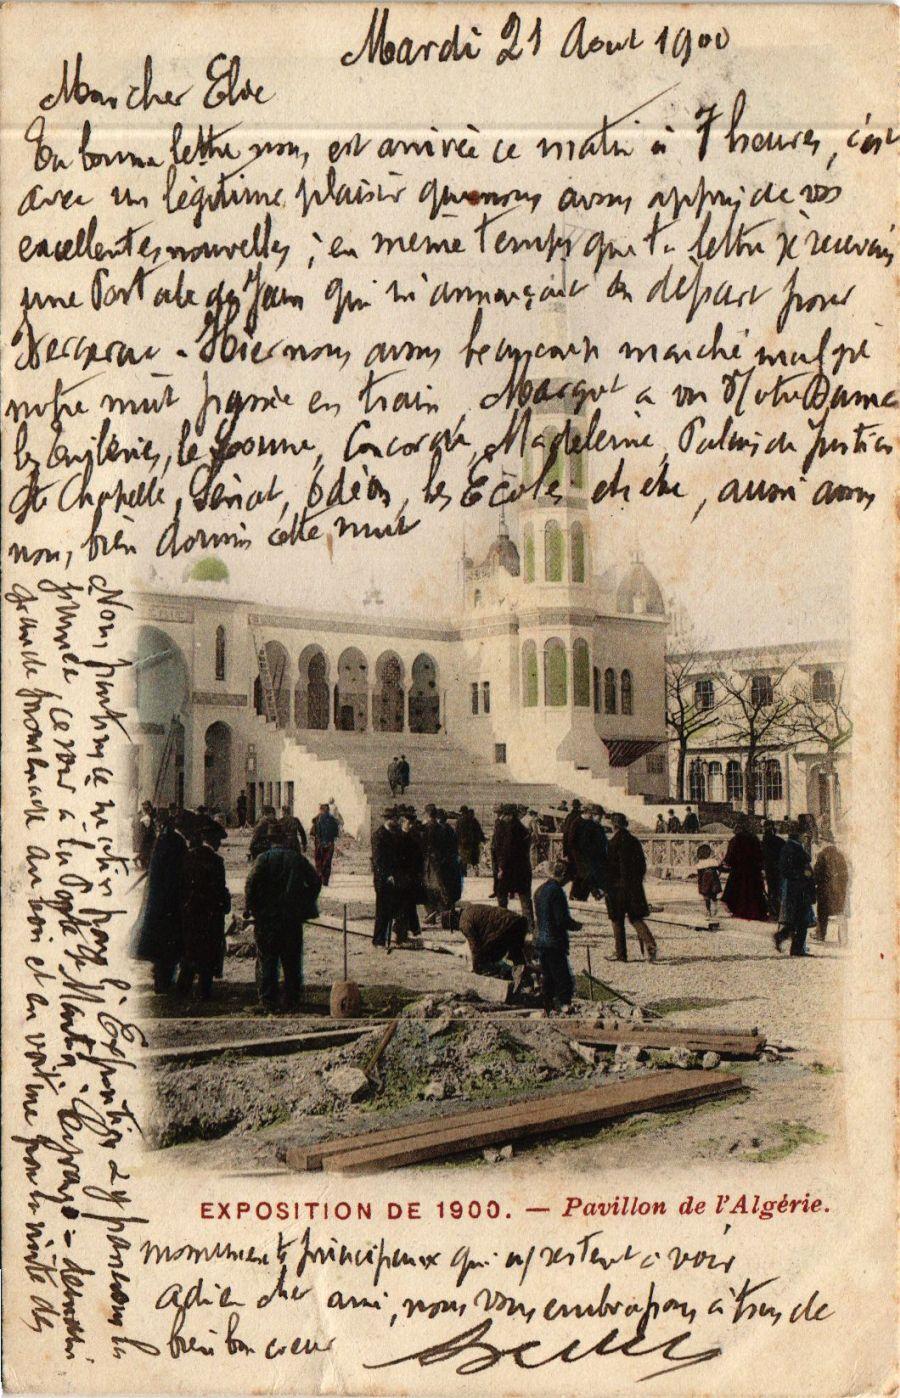 Mardi 21 Aout 1900
Mon cher Elie
Ta bonne lettre nous est arrivée ce matin à 7 heures, c'est
avec un légitime plaisir que nous avons appris de vos
excellentes nouvelles ; en même temps que ta lettre je recevais
une Postale de Jean qui m'annonçait son départ pour
Bergerac - Hier nous avons beaucoup marché malgré
notre nuit passée en train, a vu Notre Dame
les Tuileries, le Louvre, Concorde, Madeleine, Palais de Justice
Ste Chapelle, Sénat, Odéon, les Ecoles etc etc, aussi avons
nous bien dormi cette nuit
Nous partons ce matin pour l'Exposition & y passerons la
journée, ce soir à la Porte St Martin - demain
grande promenade au bois et en voiture pour la visite des
EXPOSITION DE 1900. — Pavillon de l'Algérie.
monuments principaux qui restent à voir
adieu cher ami, nous vous embrassons à tous de
bien bon coeur